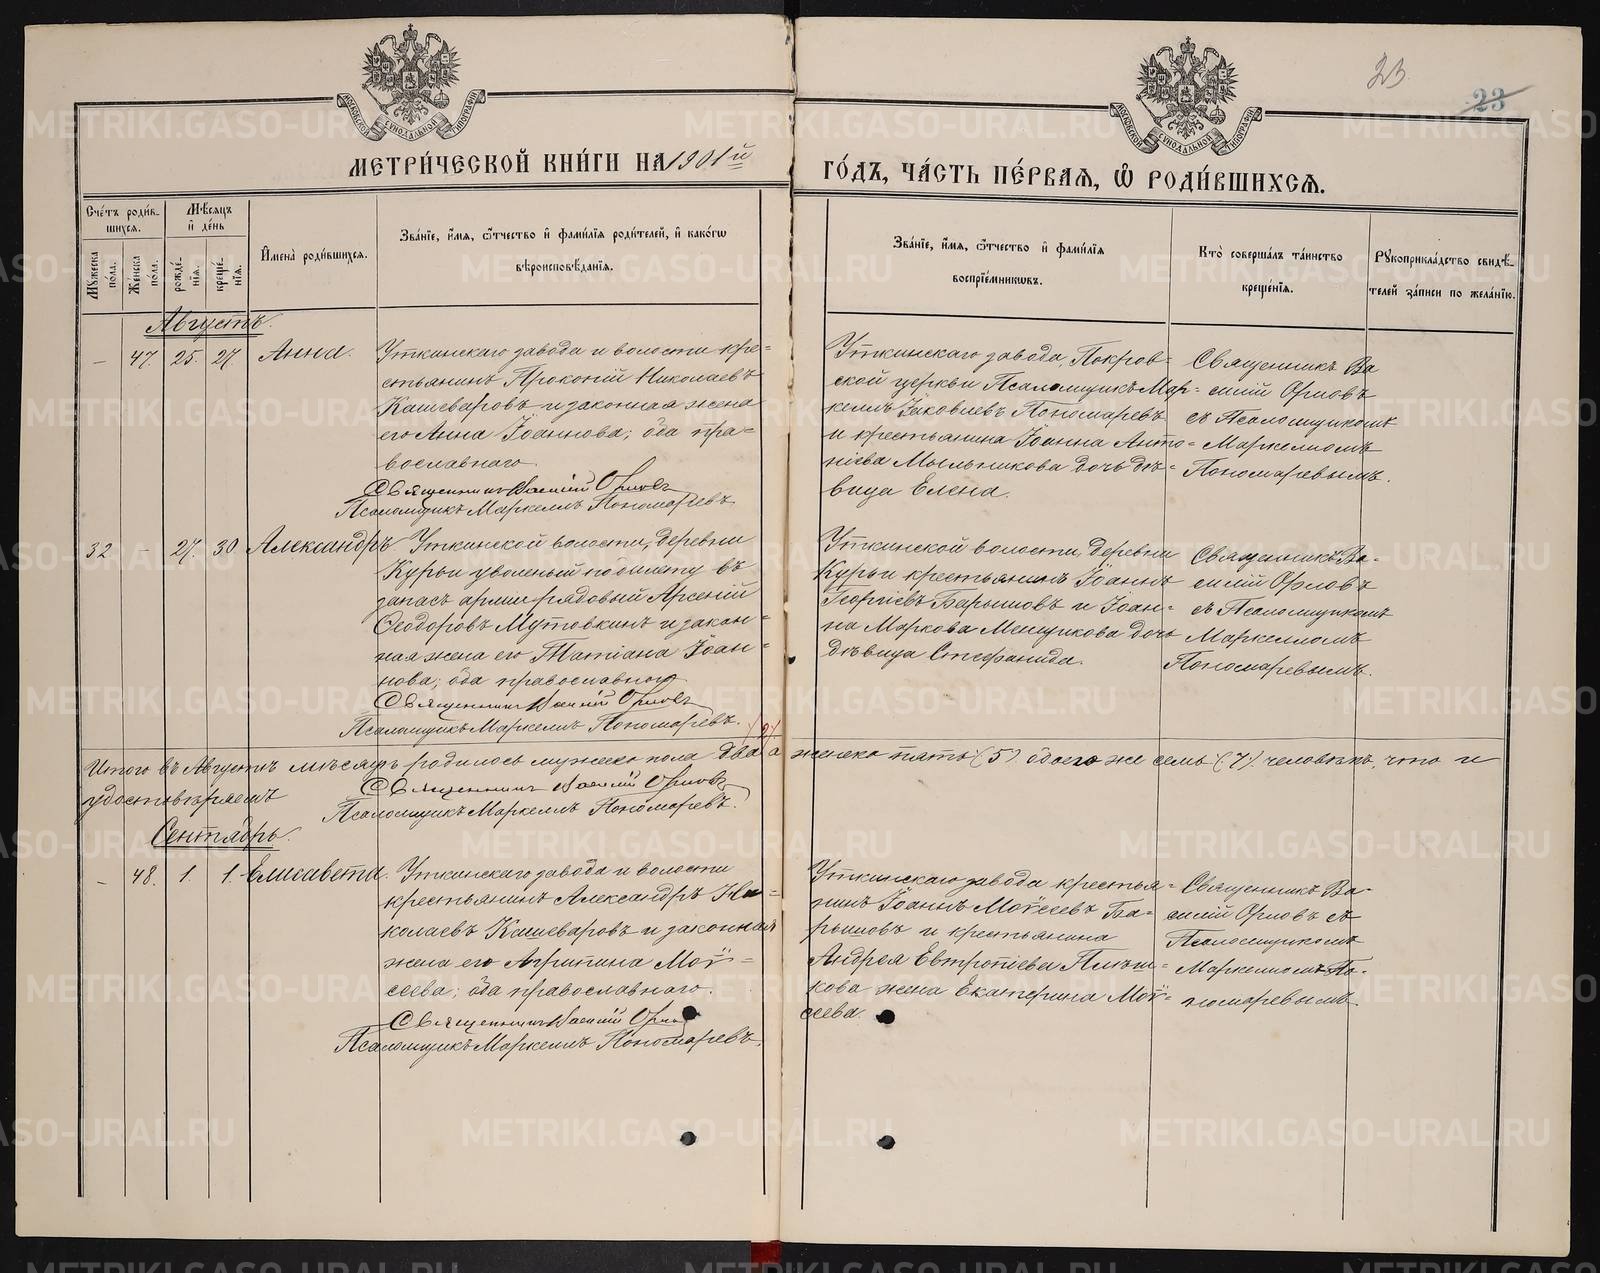 23
23
МОСКОВСКОЙ СѴНОДАЛЬНОЙ ТИПОГРАФІИ
МОСКОВСКОЙ СѴНОДАЛЬНОЙ ТИПОГРАФІИ
МЕТРИ́ЧЕСКОЙ КНИ́ГИ НА 1901й ГО́ДЪ, ЧА́СТЬ ПЕ́РВАѦ, Ѡ҆ РОДИ́ВШИХСѦ.
Сче́тъ роди́в-
шихсѧ.
Мѣ́сѧцъ
и҆ де́нь
Мꙋ́жеска по́ла.
Же́нска по́ла.
рожде́-
нїѧ.
креще́-
нїѧ.
И҆мена̀ роди́вшихсѧ.
Зва́нїе, и҆́мѧ, ѻ҆́тчество и҆ фами́лїѧ роди́телей, и҆ како́гѡ
вѣроисповѣ́данїѧ.
Зва́нїе, и҆́мѧ, ѻ҆́тчество и҆ фами́лїѧ
воспрїе́мникѡвъ.
Кто̀ соверша́лъ та́инство
креще́нїѧ.
Рꙋкоприкла́дство свидѣ́-
телей за́писи по жела́нїю.
Августъ.
– 47. 25. 27. Анна.
Уткинскаго завода и волости кре=
стьянинъ Прокопій Николаевъ
Кашеваровъ и законная жена
его Анна Іоаннова; оба пра=
вославнаго
Священникъ Василій Орловъ
Псаломщикъ Маркеллъ Пономаревъ
Уткинскаго завода, Покров=
ской церкви Псаломщикъ Мар=
келлъ Іаковлевъ Пономаревъ
и крестьянина Іоанна Анто=
ніева Мыльникова дочь дѣ=
вица Елена.
Священникъ Ва
силій Орловъ
съ Псаломщикомъ
Маркелломъ
Пономаревымъ.
32 – 27. 30 Александръ
Уткинской волости, деревни
Курьи уволеный по билету въ
запасъ арміи рядовый Арсеній
Ѳеодоровъ Мутовкинъ и закон=
ная жена его Татіана Іоан=
нова; оба православнаго
Священникъ Василій Орловъ
Псаломщикъ Маркеллъ Пономаревъ.
Уткинской волости, деревни
Курьи крестьянинъ Іоаннъ
Георгіевъ Барышовъ и Іоан=
на Маркова Менщикова дочь
дѣвица Стефанида.
Священникъ Ва=
силій Орловъ
съ Псаломщикомъ
Маркелломъ
Пономаревымъ.
(2)
Итого въ Августѣ мѣсяцѣ родилось мужеска пола два а женска пять (5) обоего же семь (7) человѣкъ, что и
удостовѣряемъ
Священникъ Василій Орловъ
Псаломщикъ Маркеллъ Пономаревъ.
Сентябрь.
– 48. 1. 1. Елисавета.
Уткинскаго завода и волости
крестьянинъ Александръ Ни=
колаевъ Кашеваровъ и законная
жена его Агрипина Мои=
сеева; оба православнаго.
Священникъ Василій Орловъ
Псаломщикъ Маркеллъ Пономаревъ.
Уткинскаго завода крестья=
нинъ Іоаннъ Моисеевъ Ба=
рышовъ и крестьянина
Андрея Евтропіева Плѣш=
кова жена Екатерина Мои=
сеева.
Священникъ Ва=
силій Орловъ съ
Псаломщикомъ
Маркелломъ По=
номаревымъ.
METRIKI.GASO-URAL.RU